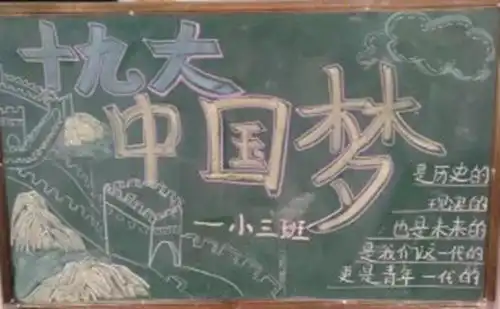 十九大
中国梦
一小三班
是历史的
现实的
也是未来的
是我们这一代的
更是青年一代的